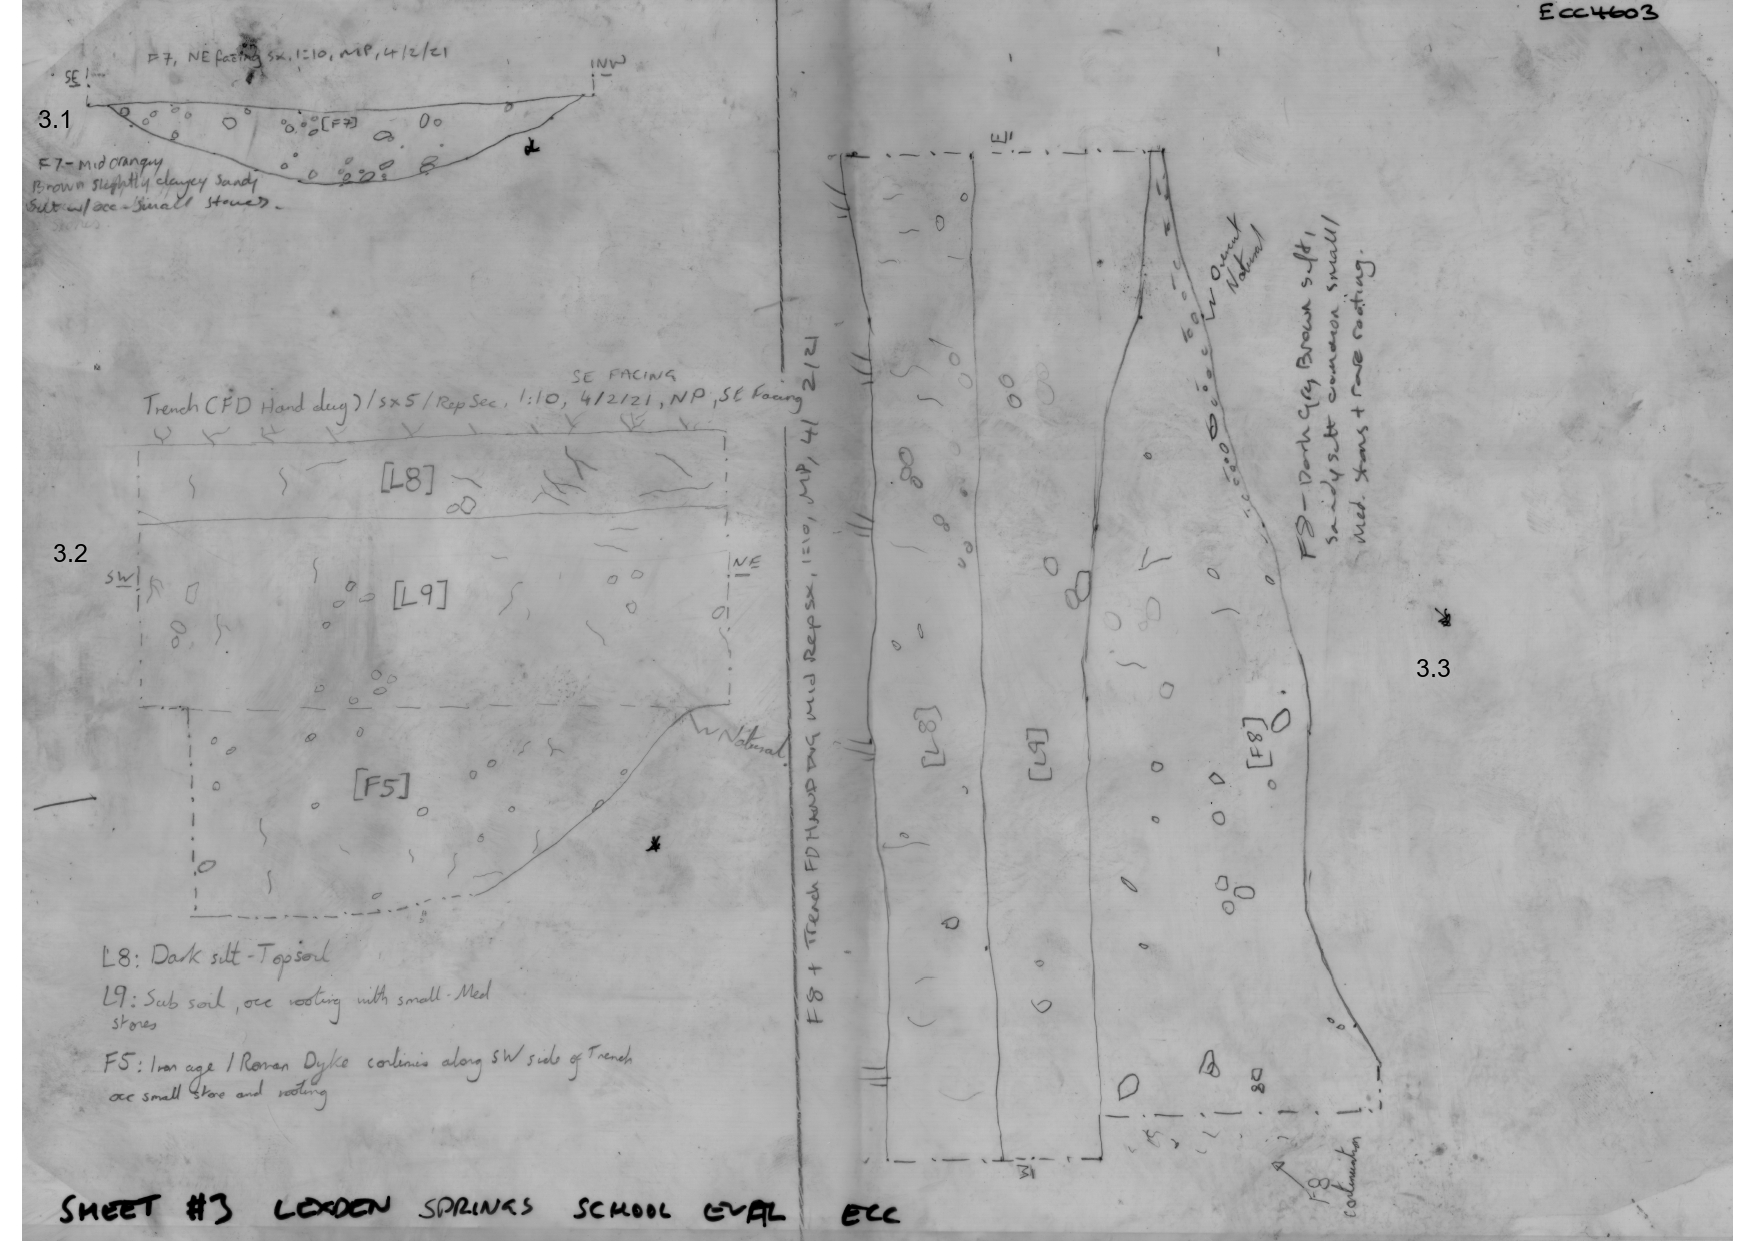 ECC4603
F7, NE facing sx, 1:10, MP, 4/2/21
SE
NW
3.1
[F7]
F7-Mid orangey
Brown slightly clayey sandy
Silt w/ occ-small stones.
stones
SE FACING
Trench (FD Hand dug)/sx5/Rep Sec, 1:10, 4/2/21, NP, SE Facing
[L8]
3.2
SW
NE
[L9]
Natural.
[F5]
L8: Dark silt-Topsoil
L9: Sub soil, occ rooting with small-Med
stones
F5: Iron age / Roman Dyke continues along SW side of Trench
occ small stone and rooting
F8 + Trench FD HAND DUG Mid Rep sx, 1:10, MP, 4/2/21
E
W
[L8]
[L9]
[F8]
Natural
F8-Dark Grey Brown soft,
sandy silt common small/
Med. stones + rare rooting.
3.3
F8
continuation
SHEET #3 LEXDEN SPRINGS SCHOOL EVAL ECC